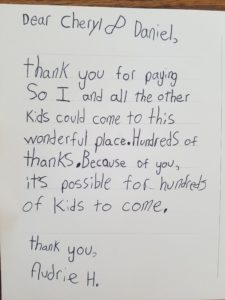 Dear Cheryl & Daniel,
thank you for paying
So I and all the other
Kids could come to this
wonderful place. Hundreds of
thanks. Because of you,
it's possible for hundreds
of Kids to come.
thank you,
Audrie H.